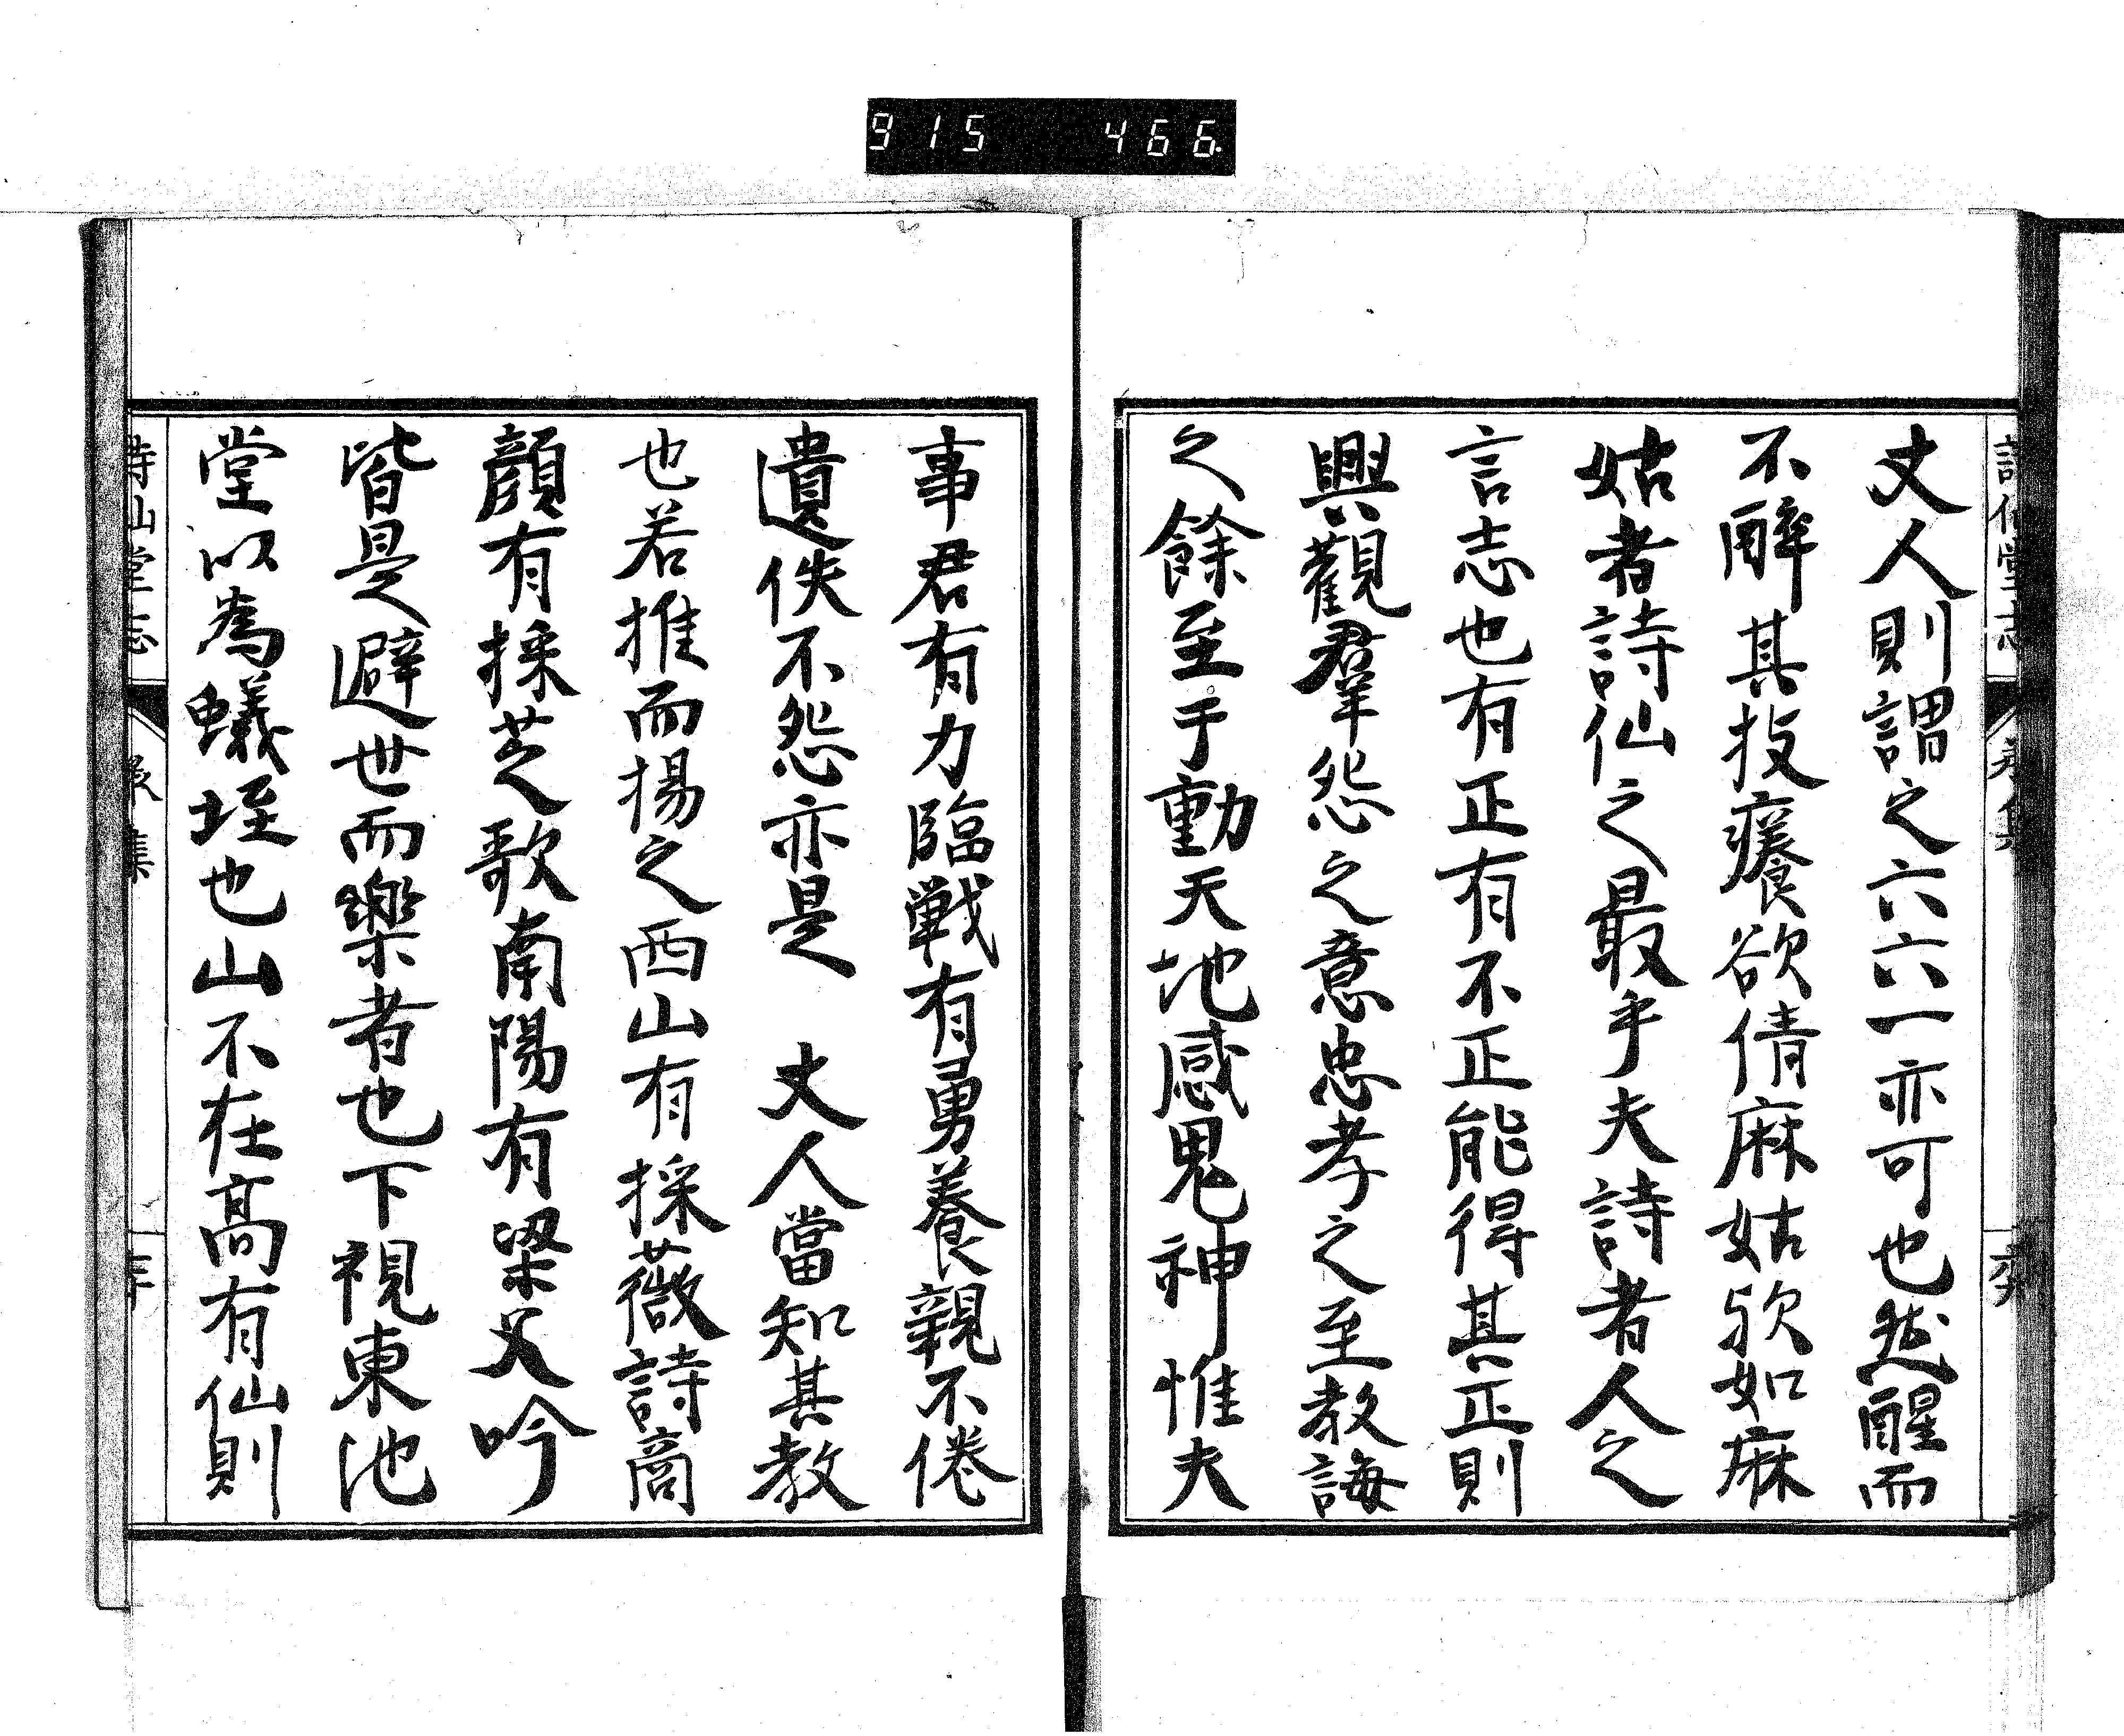 915 466
丈人則謂之六六一亦可也然醒而
不醉其技癢欲倩麻姑欤如麻
姑者詩仙之最乎夫詩者人之
言志也有正有不正能得其正則
興觀羣怨之意忠孝之至教誨
之餘至于動天地感鬼神惟夫
事君有力臨戰有勇養親不倦
遺佚不怨亦是 丈人當知其教
也若推而揚之西山有採薇詩商
顏有採芝歌南陽有梁父吟
皆是避世而樂者也下視東池
堂以為蟻垤也山不在高有仙則
詩仙堂志